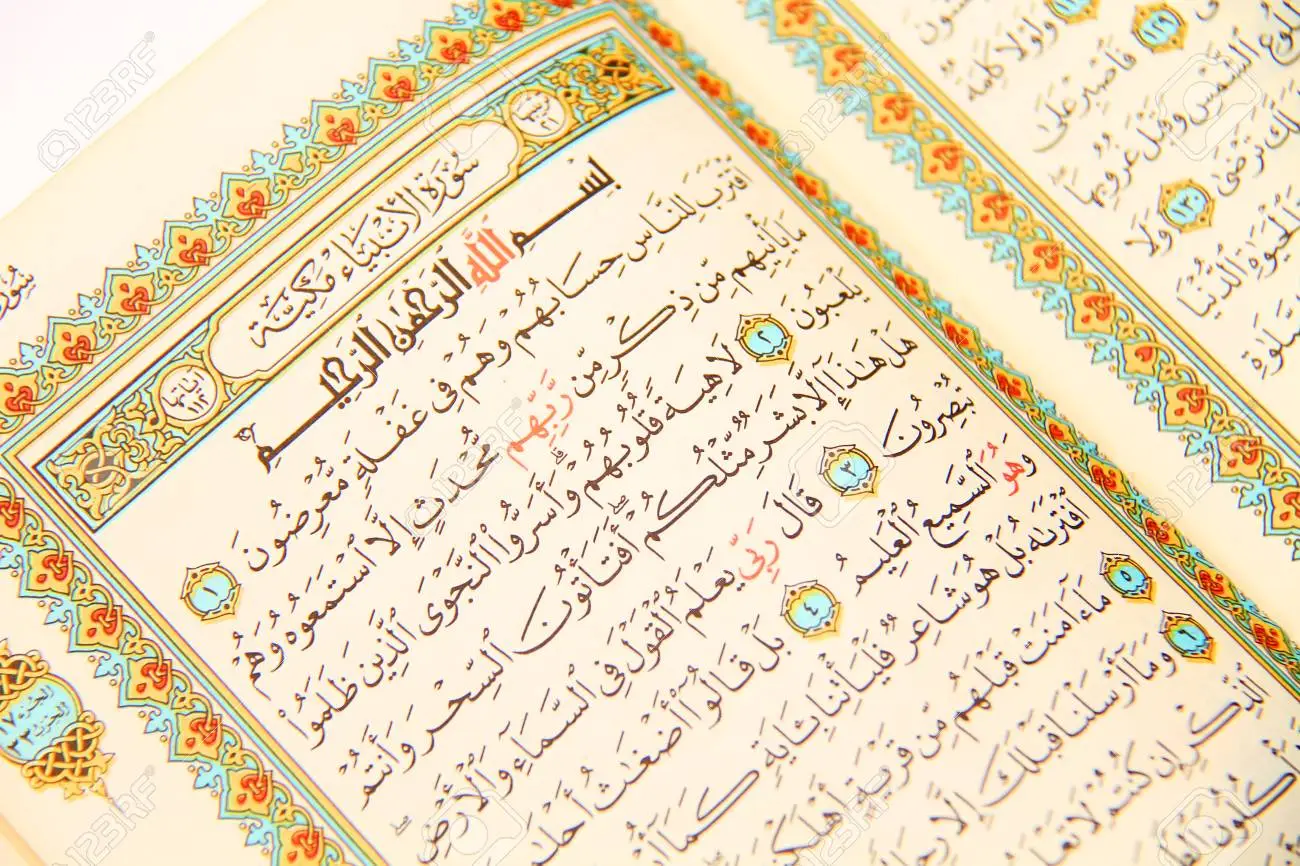 سُورَةُ الْأَنْبِيَاءِ مَكِّيَّة
بِسْمِ اللَّهِ الرَّحْمَٰنِ الرَّحِيمِ
ٱقْتَرَبَ لِلنَّاسِ حِسَابُهُمْ وَهُمْ فِى غَفْلَةٍ مُّعْرِضُونَ ١
مَا يَأْتِيهِم مِّن ذِكْرٍ مِّن رَّبِّهِم مُّحْدَثٍ إِلَّا ٱسْتَمَعُوهُ وَهُمْ
يَلْعَبُونَ ٢ لَاهِيَةً قُلُوبُهُمْ وَأَسَرُّوا۟ ٱلنَّجْوَى ٱلَّذِينَ ظَلَمُوا۟
هَلْ هَٰذَآ إِلَّا بَشَرٌ مِّثْلُكُمْ أَفَتَأْتُونَ ٱلسِّحْرَ وَأَنتُمْ
تُبْصِرُونَ ٣ قَالَ رَبِّى يَعْلَمُ ٱلْقَوْلَ فِى ٱلسَّمَآءِ وَٱلْأَرْضِ
وَهُوَ ٱلسَّمِيعُ ٱلْعَلِيمُ ٤ بَلْ قَالُوٓا۟ أَضْغَٰثُ أَحْلَٰمٍ
ٱفْتَرَىٰهُ بَلْ هُوَ شَاعِرٌ فَلْيَأْتِنَا بِـَٔايَةٍ كَمَآ
٥ مَآ ءَامَنَتْ قَبْلَهُم مِّن قَرْيَةٍ
٦ وَمَآ أَرْسَلْنَا قَبْلَكَ إِلَّا
ٱلذِّكْرِ إِن كُنتُمْ لَا
١٢٩
وَلَوْلَا كَلِمَةٌ
فَٱصْبِرْ عَلَىٰ
ٱلشَّمْسِ وَقَبْلَ غُرُوبِهَا
تَرْضَىٰ ١٣٠ وَلَا
ٱلْحَيَوٰةِ ٱلدُّنْيَا
123RF